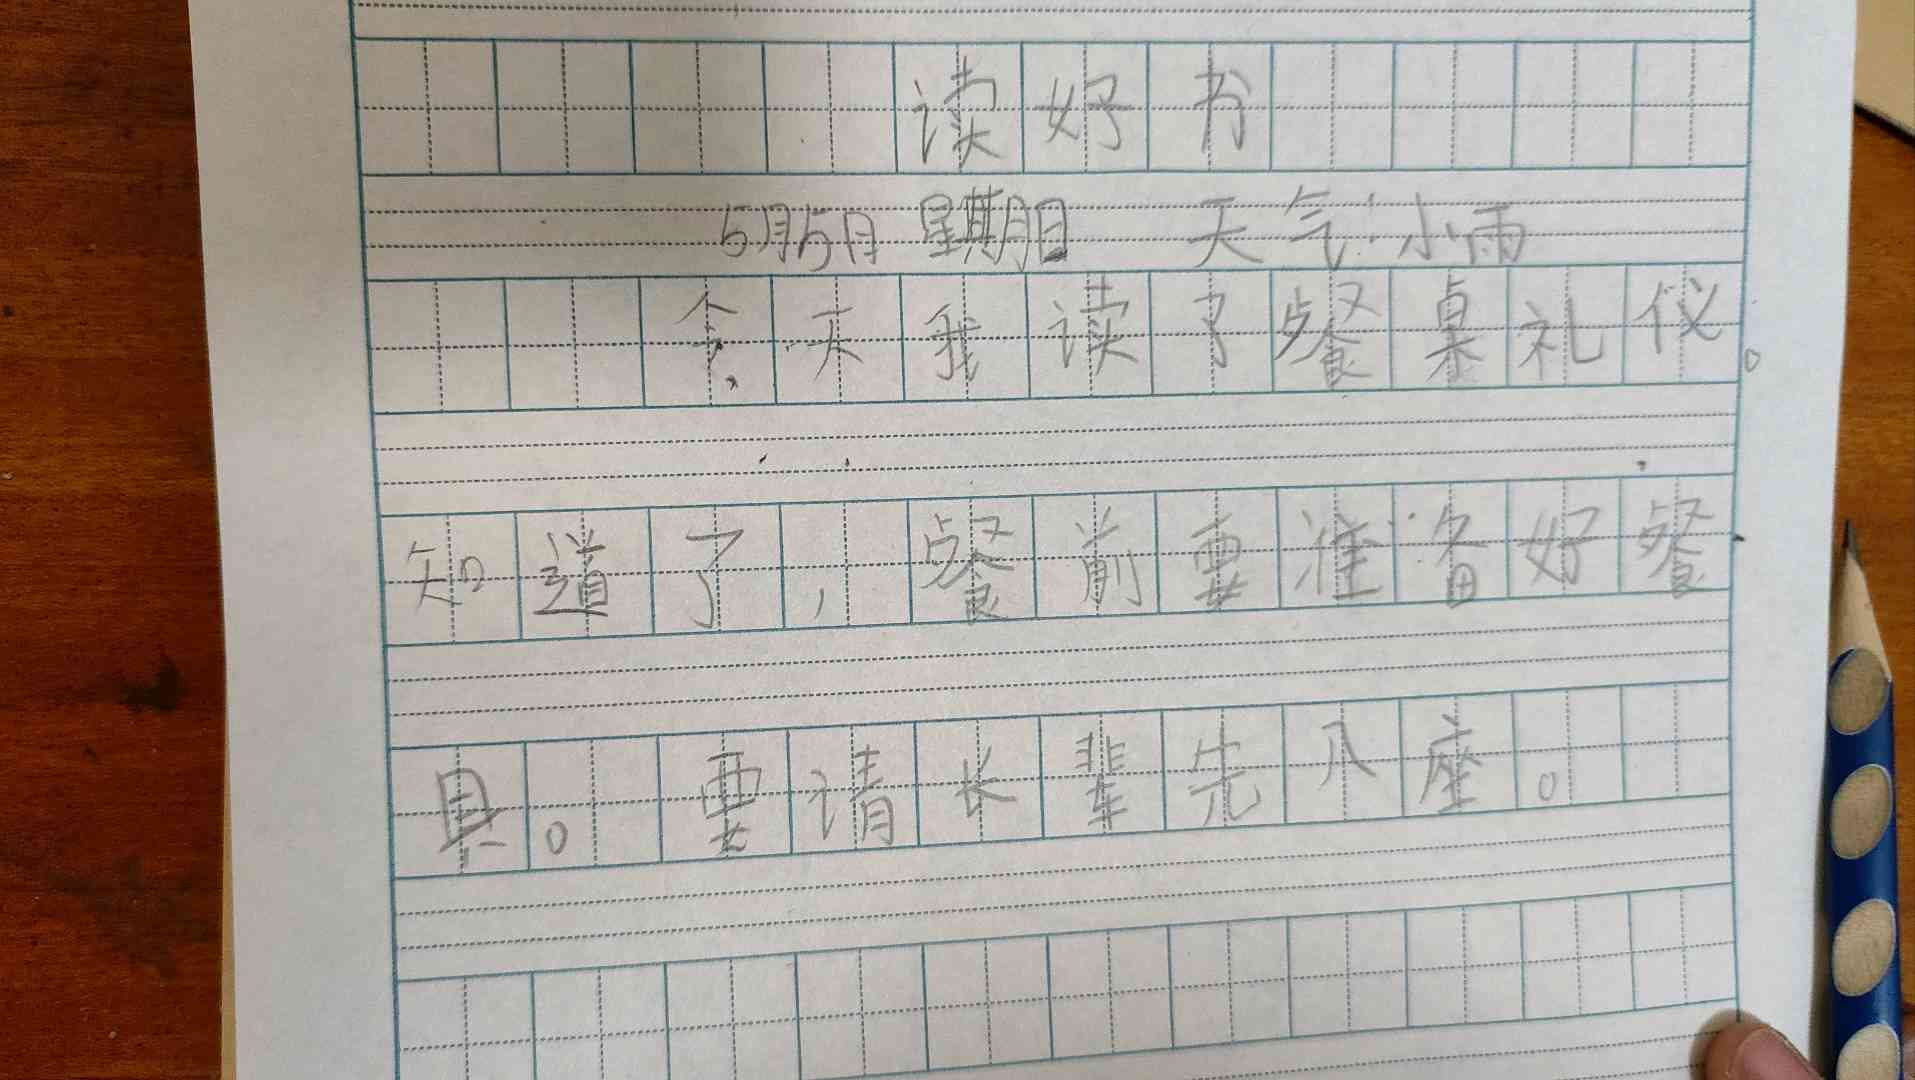 读好书
5月5日 星期日 天气:小雨
今天我读了餐桌礼仪。
知道了,餐前要准备好餐
具。要请长辈先入座。